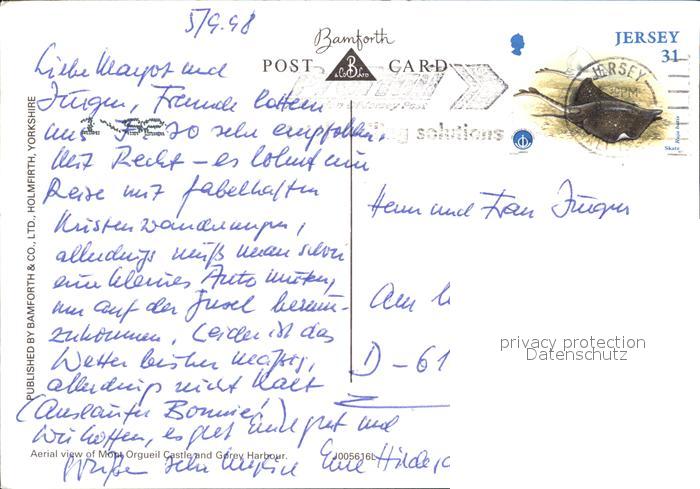 5/9.98
Liebe Margot und
Jürgen, Freunde hatten
uns sehr empfohlen.
Mit Recht – es lohnt eine
Reise mit fabelhaften
Küstenwanderungen,
allerdings muß man schon
ein kleines Auto mieten,
um auf der Insel herum-
zukommen. Leider ist das
Wetter bisher mäßig,
allerdings nicht kalt
(Ausläufer Bonnie!)
Wir hoffen, es geht Euch gut und
grüßen sehr Eure
Aerial view of Mont Orgueil Castle and Gorey Harbour. J005616L
PUBLISHED BY BAMFORTH & CO., LTD., HOLMFIRTH, YORKSHIRE
Bamforth
POST CARD
B
& Co Ltd
JERSEY
31
JERSEY
Skate
solutions
Herrn und Frau Jürgen
Am
D – 61
privacy protection
Datenschutz